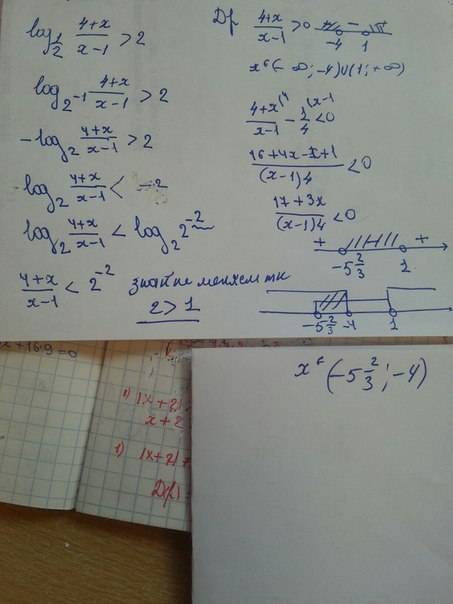 log_{1/2} (4+x)/(x-1) > 2
log_{2^{-1}} (4+x)/(x-1) > 2
-log_2 (4+x)/(x-1) > 2
log_2 (4+x)/(x-1) < -2
log_2 (4+x)/(x-1) < log_2 2^{-2}
(4+x)/(x-1) < 2^{-2} знак не меняем тк
2 > 1
(4+x)/(x-1) > 0
-4 1
x ∈ (-∞; -4) ∪ (1; +∞)
(4+x)/(x-1) - 1/4 < 0
(16+4x-x+1)/((x-1)4) < 0
(17+3x)/((x-1)4) < 0
+ +
-5 2/3 1
-5 2/3 -4 1
x ∈ (-5 2/3; -4)
x+16·9=0
1) |x+2|
x+2
1) |x+2|